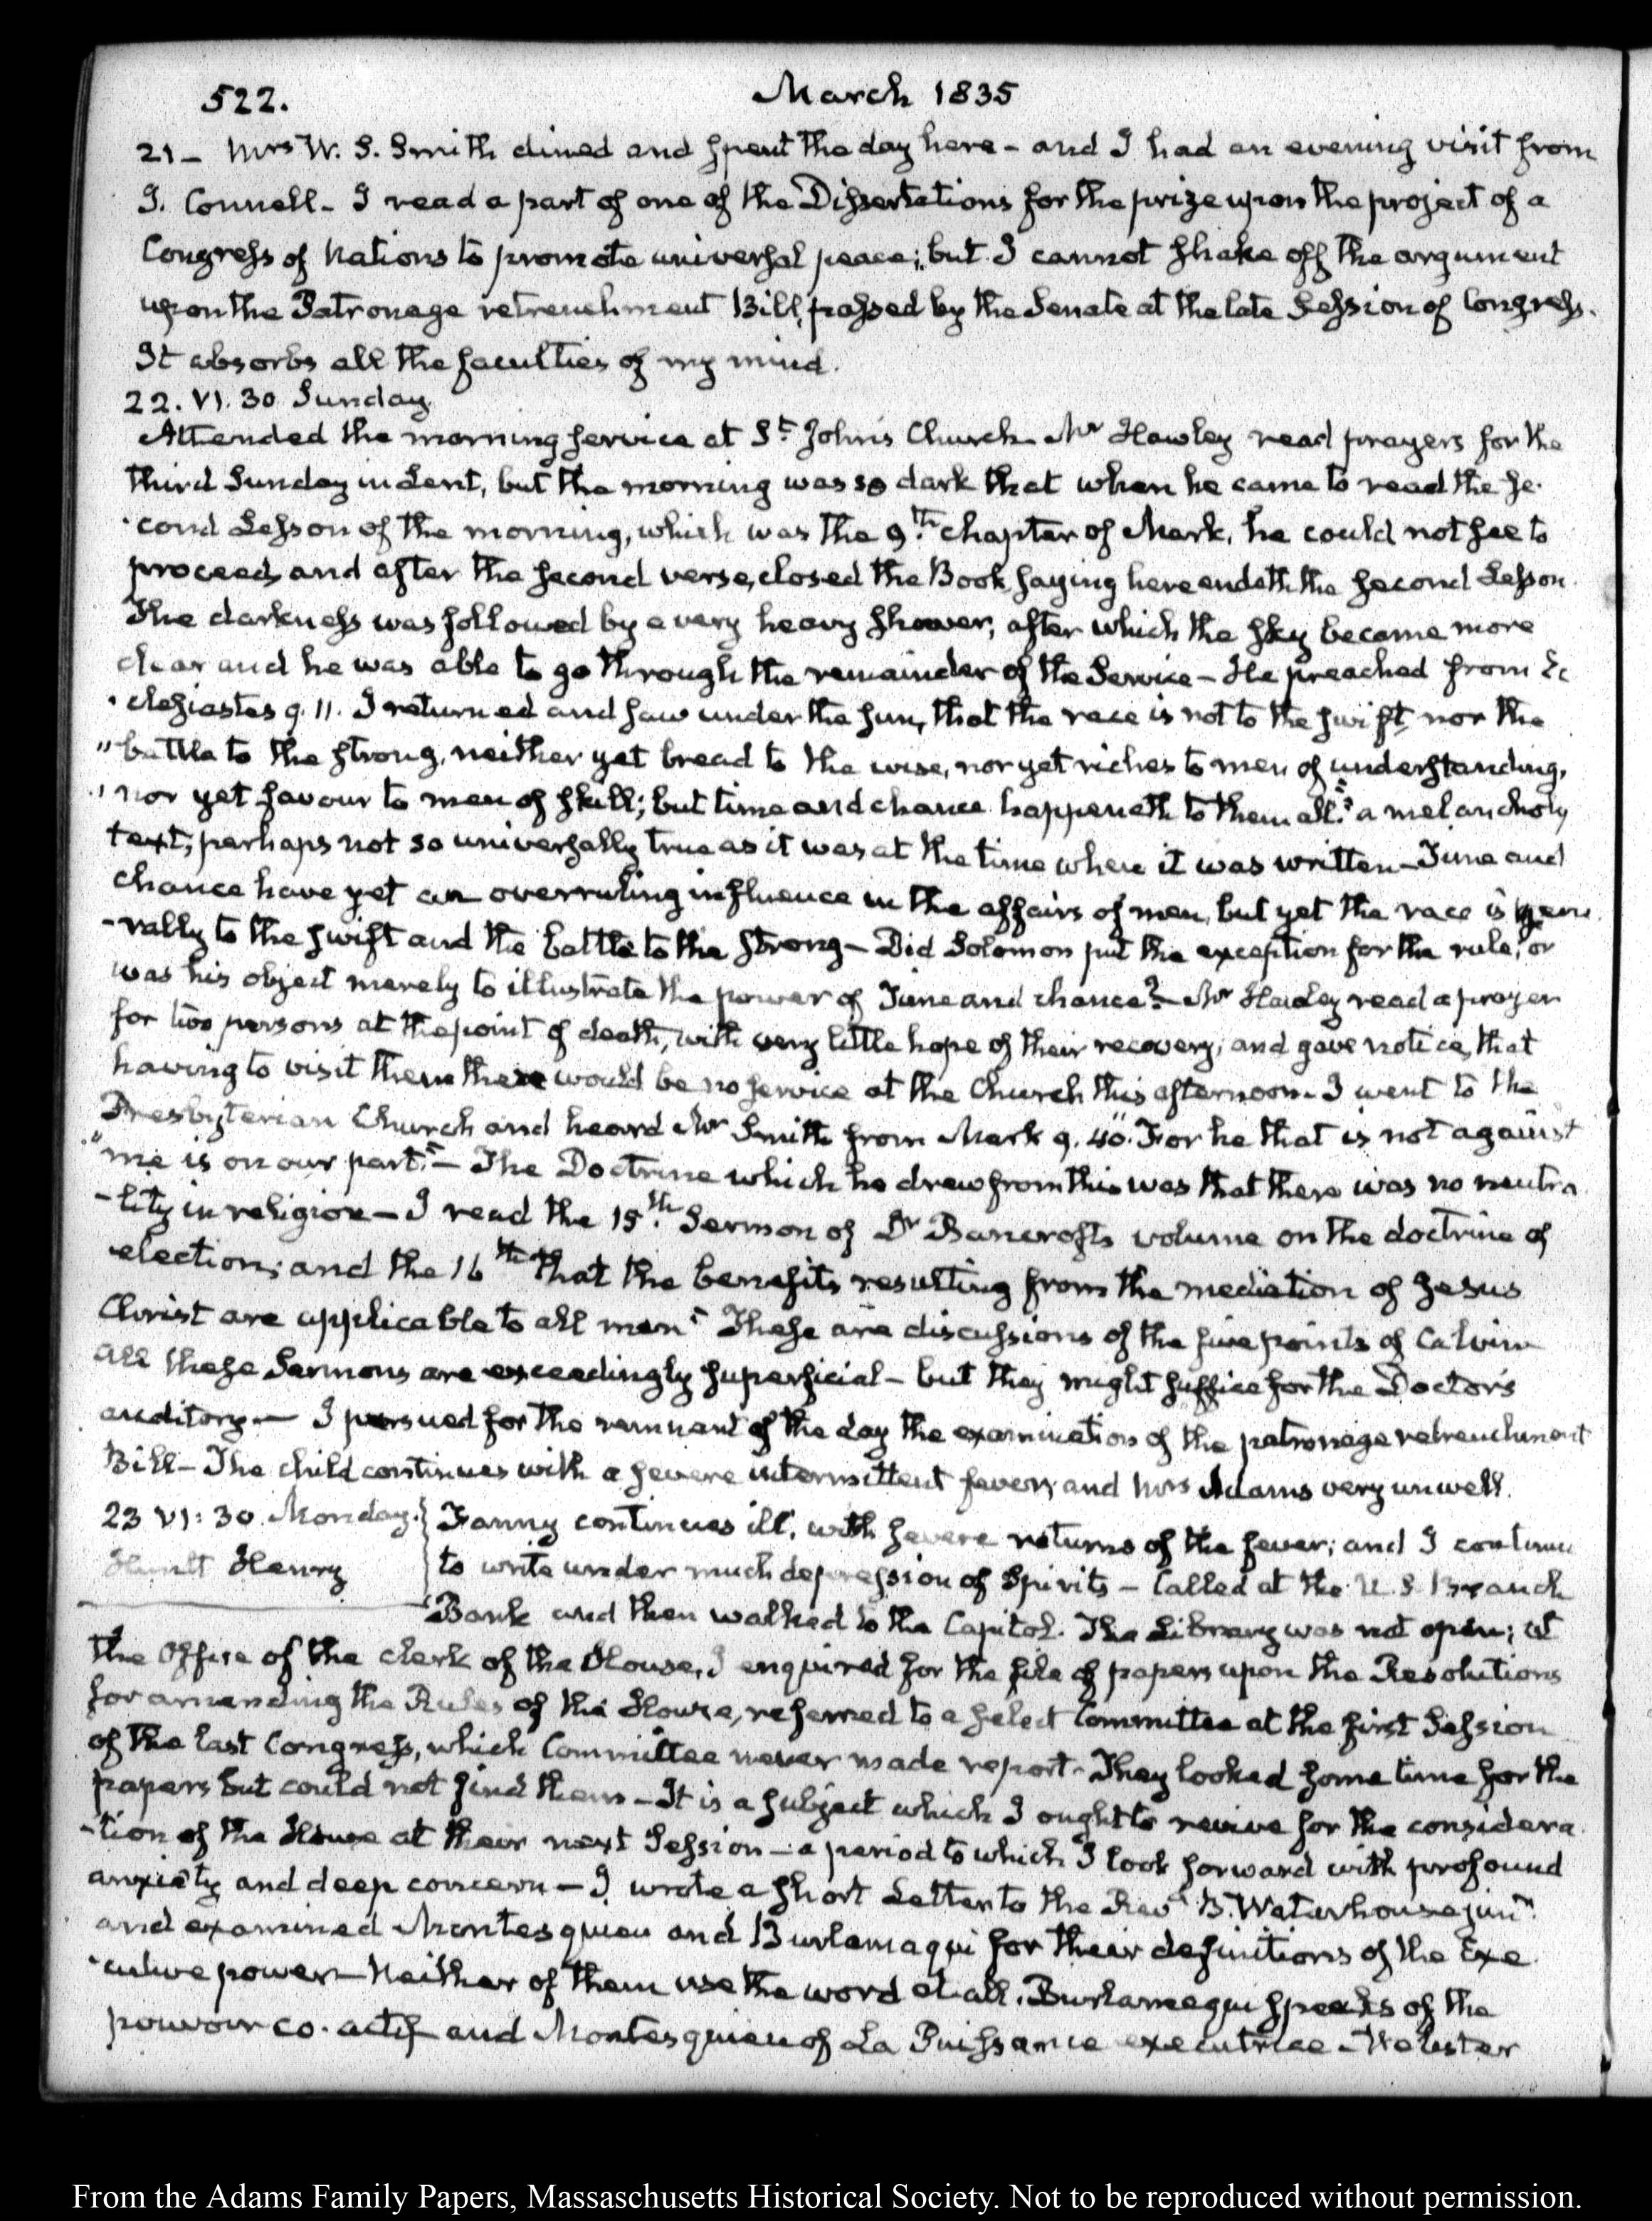 522. March 1835
21– Mrs W. S. Smith dined and spent the day here – and I had an evening visit from
J. Connell – I read a part of one of the Dissertations for the prize upon the project of a
Congress of Nations to promote universal peace; but I cannot shake off the argument
upon the Patronage retrenchment Bill, passed by the Senate at the late Session of Congress.
It absorbs all the faculties of my mind.
22. VI. 30 Sunday.
Attended the morning service at St. John's Church. Mr Hawley read prayers for the
third Sunday in Lent, but the morning was so dark that when he came to read the se-
-cond Lesson of the morning, which was the 9th. chapter of Mark, he could not see to
proceed, and after the second verse, closed the Book, saying here endeth the second Lesson.
The darkness was followed by a very heavy shower, after which the sky became more
clear and he was able to go through the remainder of the Service – He preached from Ec
-clesiastes 9. 11. I returned and saw under the sun, that the race is not to the swift, nor the
"battle to the strong, neither yet bread to the wise, nor yet riches to men of understanding,
"nor yet favour to men of skill; but time and chance happeneth to them all": a melancholy
text; perhaps not so universally true as it was at the time when it was written – Time and
chance have yet an overruling influence in the affairs of men, but yet the race is gene
-rally to the swift and the battle to the strong – Did Solomon put the exception for the rule, or
was his object merely to illustrate the power of Time and chance? – Mr Hawley read a prayer
for two persons at the point of death, with very little hope of their recovery; and gave notice, that
having to visit them there would be no service at the Church this afternoon. I went to the
Presbyterian Church and heard Mr Smith from Mark 9. 40. "For he that is not against
"me is on our part." – The Doctrine which he drew from this was that there was no neutra
-lity in religion – I read the 15th. Sermon of Dr Bancroft's volume on the doctrine of
election; and the 16th "that the benefits resulting from the mediation of Jesus
Christ are applicable to all men" These are discussions of the five points of Calvin
All these Sermons are exceedingly superficial – but they might suffice for the Doctor's
auditory – I pursued for the remnant of the day the examination of the patronage retrenchment
Bill – The child continues with a severe intermittent fever; and Mrs Adams very unwell.
23 VI: 30. Monday. Fanny continues ill, with severe returns of the fever; and I continue
Hunt Henry to write under much depression of Spirits – Called at the U. S. Branch
Bank and then walked to the Capitol. The Library was not open; at
the Office of the Clerk of the House, I enquired for the file of papers upon the Resolutions
for amending the Rules of the House, referred to a select Committee at the first Session
of the last Congress, which Committee never made report – They looked some time for the
papers but could not find them – It is a subject which I ought to revive for the considera
-tion of the House at their next Session – a period to which I look forward with profound
anxiety and deep concern – I wrote a short Letter to the Revd B. Waterhouse junr.
and examined Montesquieu and Burlamaqui for their definitions of the Exe
-cutive power – Neither of them use the word at all. Burlamaqui speaks of the
pouvoir co-actif and Montesquieu of La Puissance executrice – Webster
From the Adams Family Papers, Massachusetts Historical Society. Not to be reproduced without permission.